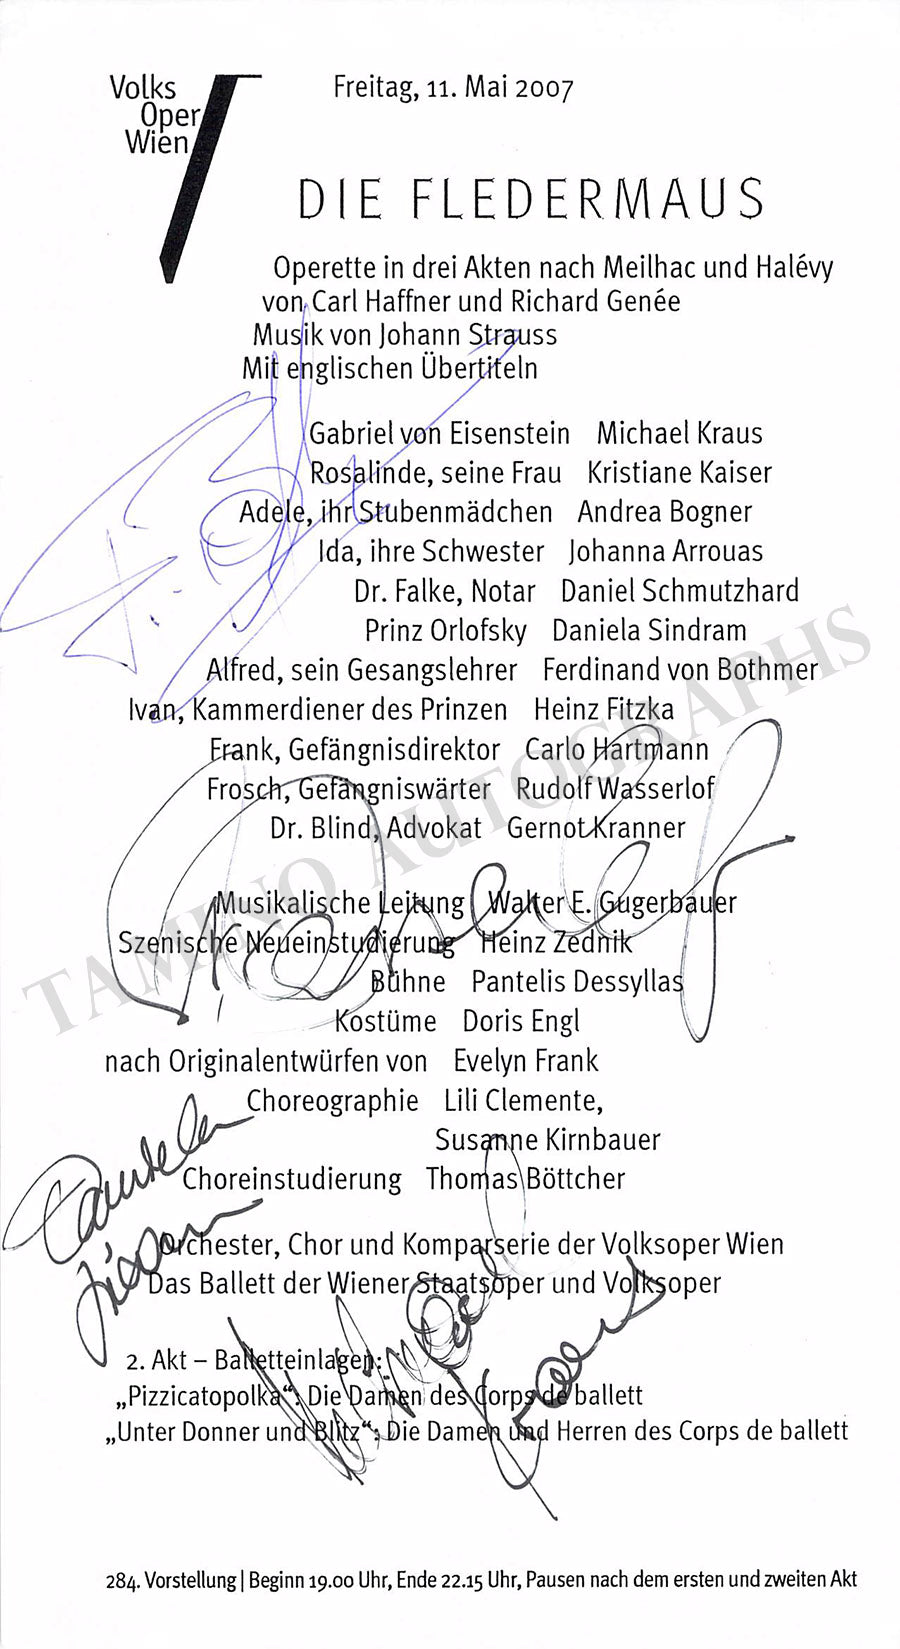 Volks
Oper
Wien
Freitag, 11. Mai 2007
DIE FLEDERMAUS
Operette in drei Akten nach Meilhac und Halévy
von Carl Haffner und Richard Genée
Musik von Johann Strauss
Mit englischen Übertiteln
Gabriel von Eisenstein Michael Kraus
Rosalinde, seine Frau Kristiane Kaiser
Adele, ihr Stubenmädchen Andrea Bogner
Ida, ihre Schwester Johanna Arrouas
Dr. Falke, Notar Daniel Schmutzhard
Prinz Orlofsky Daniela Sindram
Alfred, sein Gesangslehrer Ferdinand von Bothmer
Ivan, Kammerdiener des Prinzen Heinz Fitzka
Frank, Gefängnisdirektor Carlo Hartmann
Frosch, Gefängniswärter Rudolf Wasserlof
Dr. Blind, Advokat Gernot Kranner
TAMINO AUTOGRAPHS
Musikalische Leitung Walter E. Gugerbauer
Szenische Neueinstudierung Heinz Zednik
Bühne Pantelis Dessyllas
Kostüme Doris Engl
nach Originalentwürfen von Evelyn Frank
Choreographie Lili Clemente,
Susanne Kirnbauer
Choreinstudierung Thomas Böttcher
Orchester, Chor und Komparserie der Volksoper Wien
Das Ballett der Wiener Staatsoper und Volksoper
2. Akt – Balletteinlagen:
„Pizzicatopolka“: Die Damen des Corps de ballett
„Unter Donner und Blitz“: Die Damen und Herren des Corps de ballett
284. Vorstellung | Beginn 19.00 Uhr, Ende 22.15 Uhr, Pausen nach dem ersten und zweiten Akt